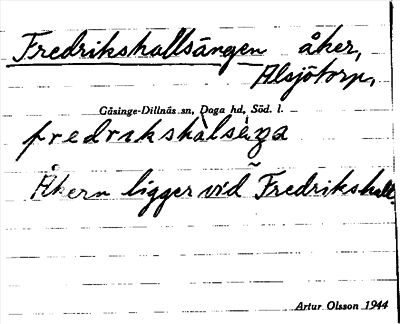 Fredrikshallsängen åker,
Alsjötorp,
Gåsinge-Dillnäs sn, Daga hd, Söd. l.
fredrikshàlsèŋa
Åkern ligger vid Fredrikshall.
Artur Olsson 1944